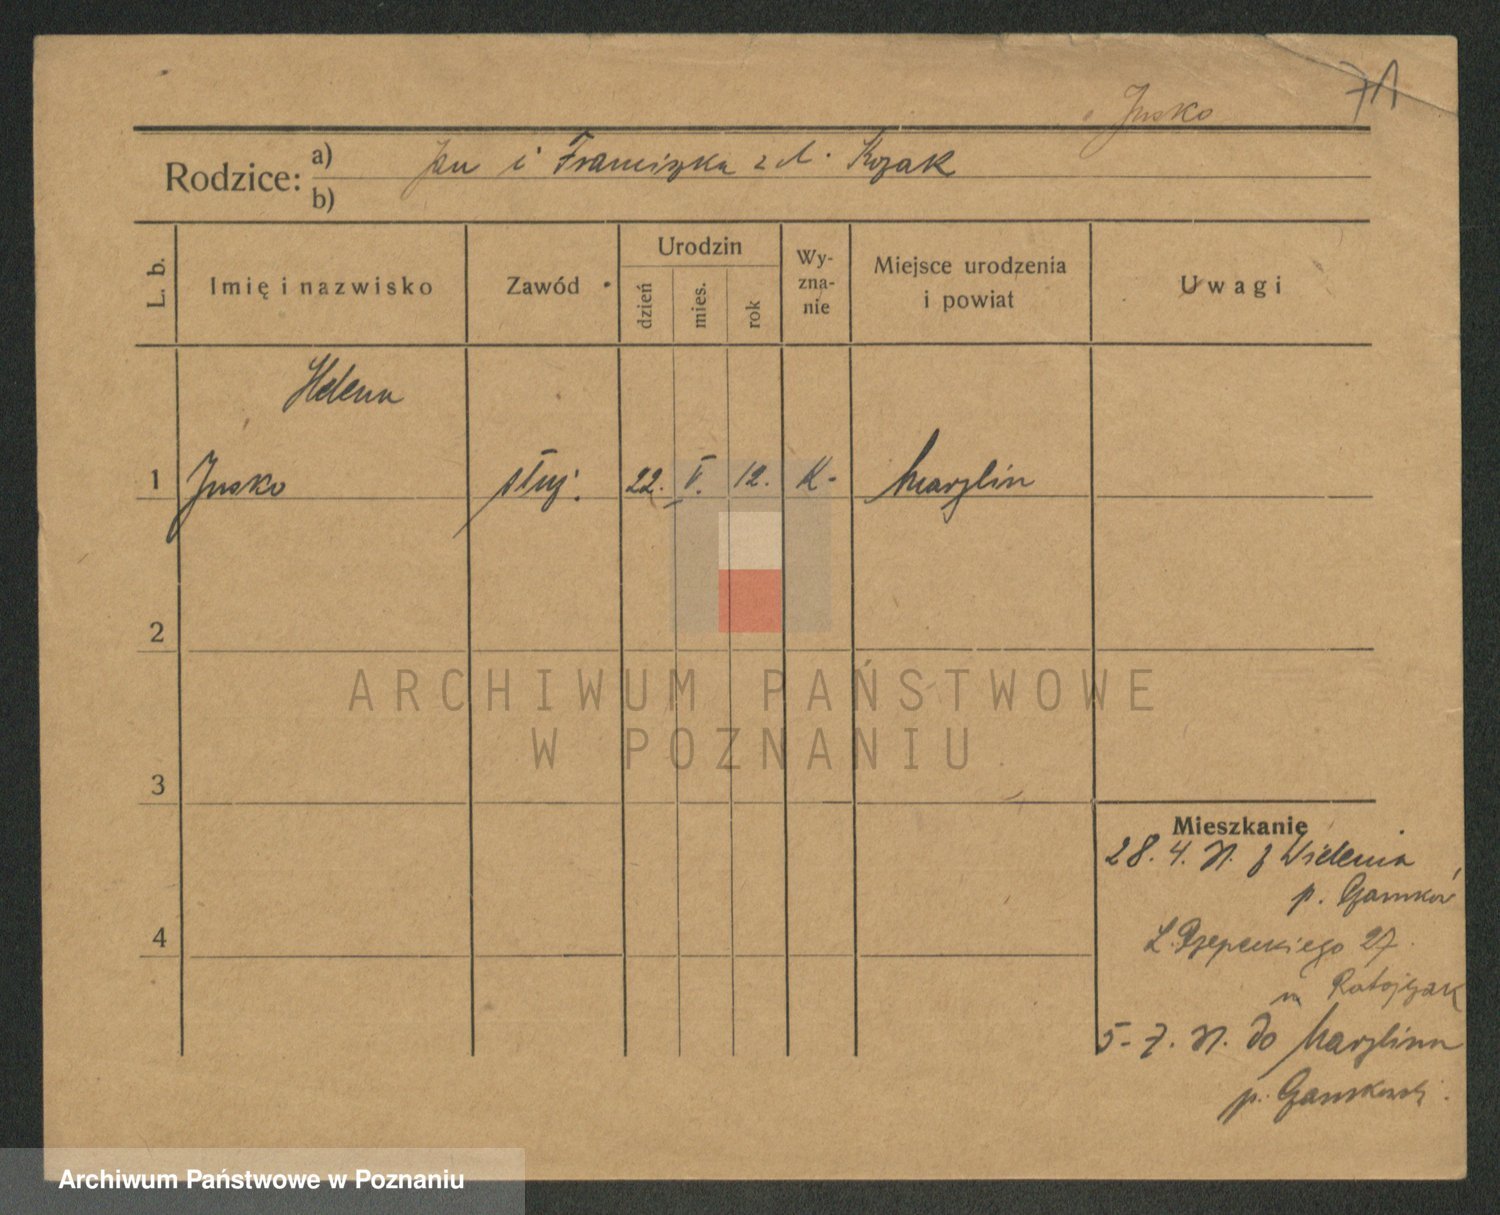 71
Jusko
Rodzice: a) Jan i Franciszka z d. Kozak
b)
L. b. Imię i nazwisko Zawód Urodzin dzień mies. rok Wyznanie Miejsce urodzenia i powiat Uwagi
Helena
1 Jusko służ. 22. V. 12. K. Marylin
2
3
4
Mieszkanie
28. 4. z Wielenia
p.
27
Ratajczak
5. 7. do Marylina
p.
ARCHIWUM PAŃSTWOWE
W POZNANIU
Archiwum Państwowe w Poznaniu